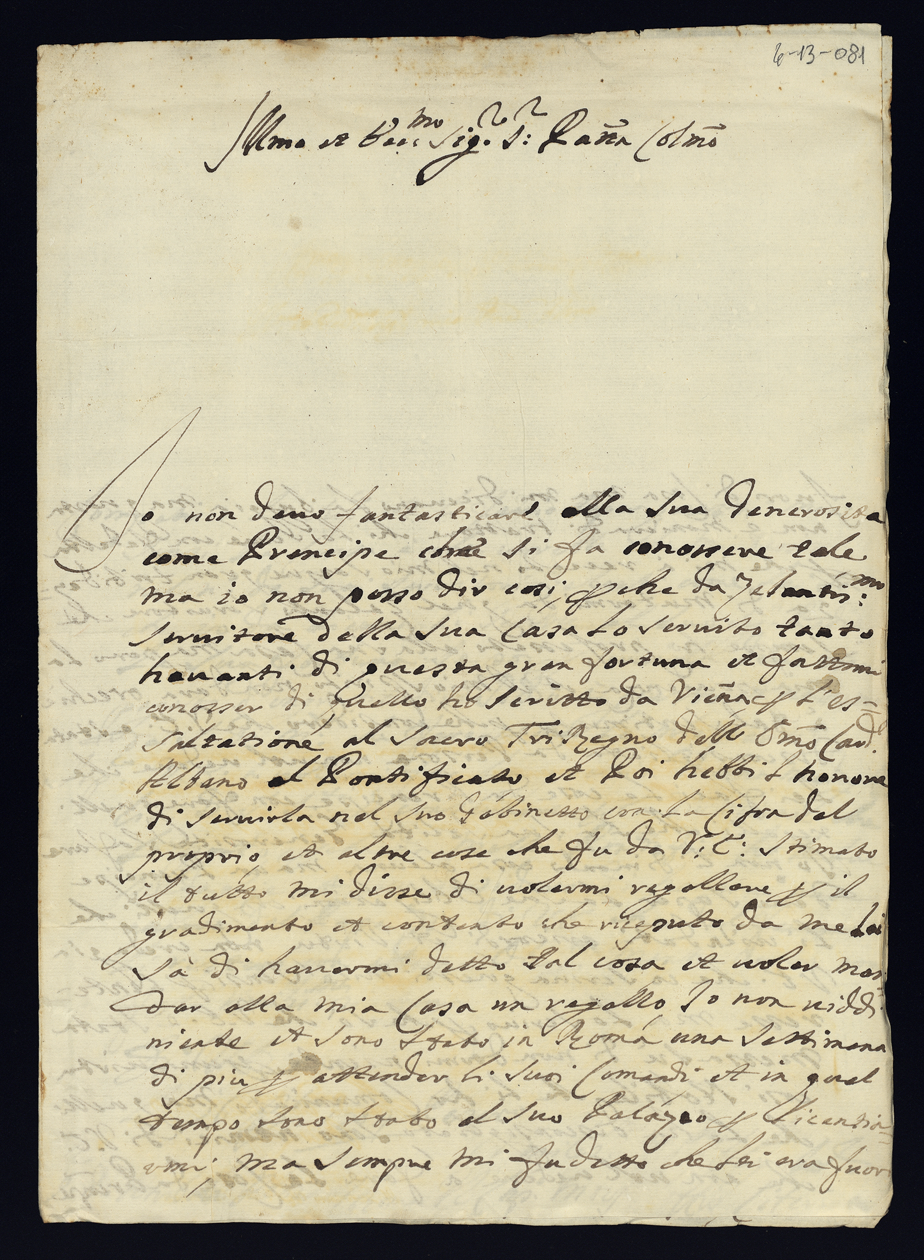 6-13-081
Illmo et Ecc.mo Sig.r S:r Pañ Colmo
Io non devo fantasticare alla sua Generosita
come Prencipe che si fa conossere tale
ma io non posso dir cosi, p che da Zelantis:mo
servitore della sua Casa Lo servito tanto
havanti di questa gran fortuna et fattomi
conosser di quello hò scritto da Vieña p L'es=
saltatione al sacro TriRegno dell Emō Card.
Albano al Pontificato et Poi hebbi L honore
di servirla nel suo Gabinetto con La Cifra del
proprio, et altre cose che fu da V: E: stimato
il tutto mi disse di volermi regallare p il
gradimento et contento che riceputo da me Lei
sà di havermi detto tal cosa et voler man
dar alla mia Casa un regallo, Io non viddi
niente et sono stato in Roma una settimana
di piu p attender li suoi Comandi et in quel
tempo sono stato al suo Palazzo p Licentia=
rmi, ma sempre mi fu detto che Lei era fuor